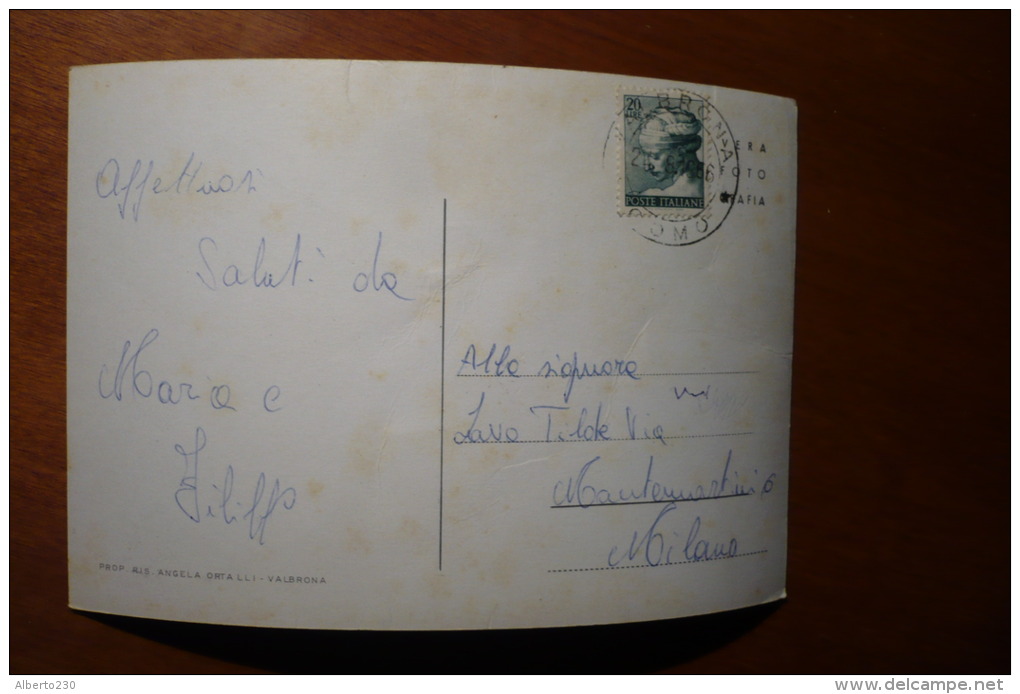 Affettuosi
Saluti da
Maria e
Filipp
PROP. RIS. ANGELA ORTALLI - VALBRONA
20
LIRE
POSTE ITALIANE
BRONA
COMO
ERA
FOTO
RAFIA
Alla signora
Lava Tilde Via
Mantemartini 6
Milano
Alberto230
delcampe.net